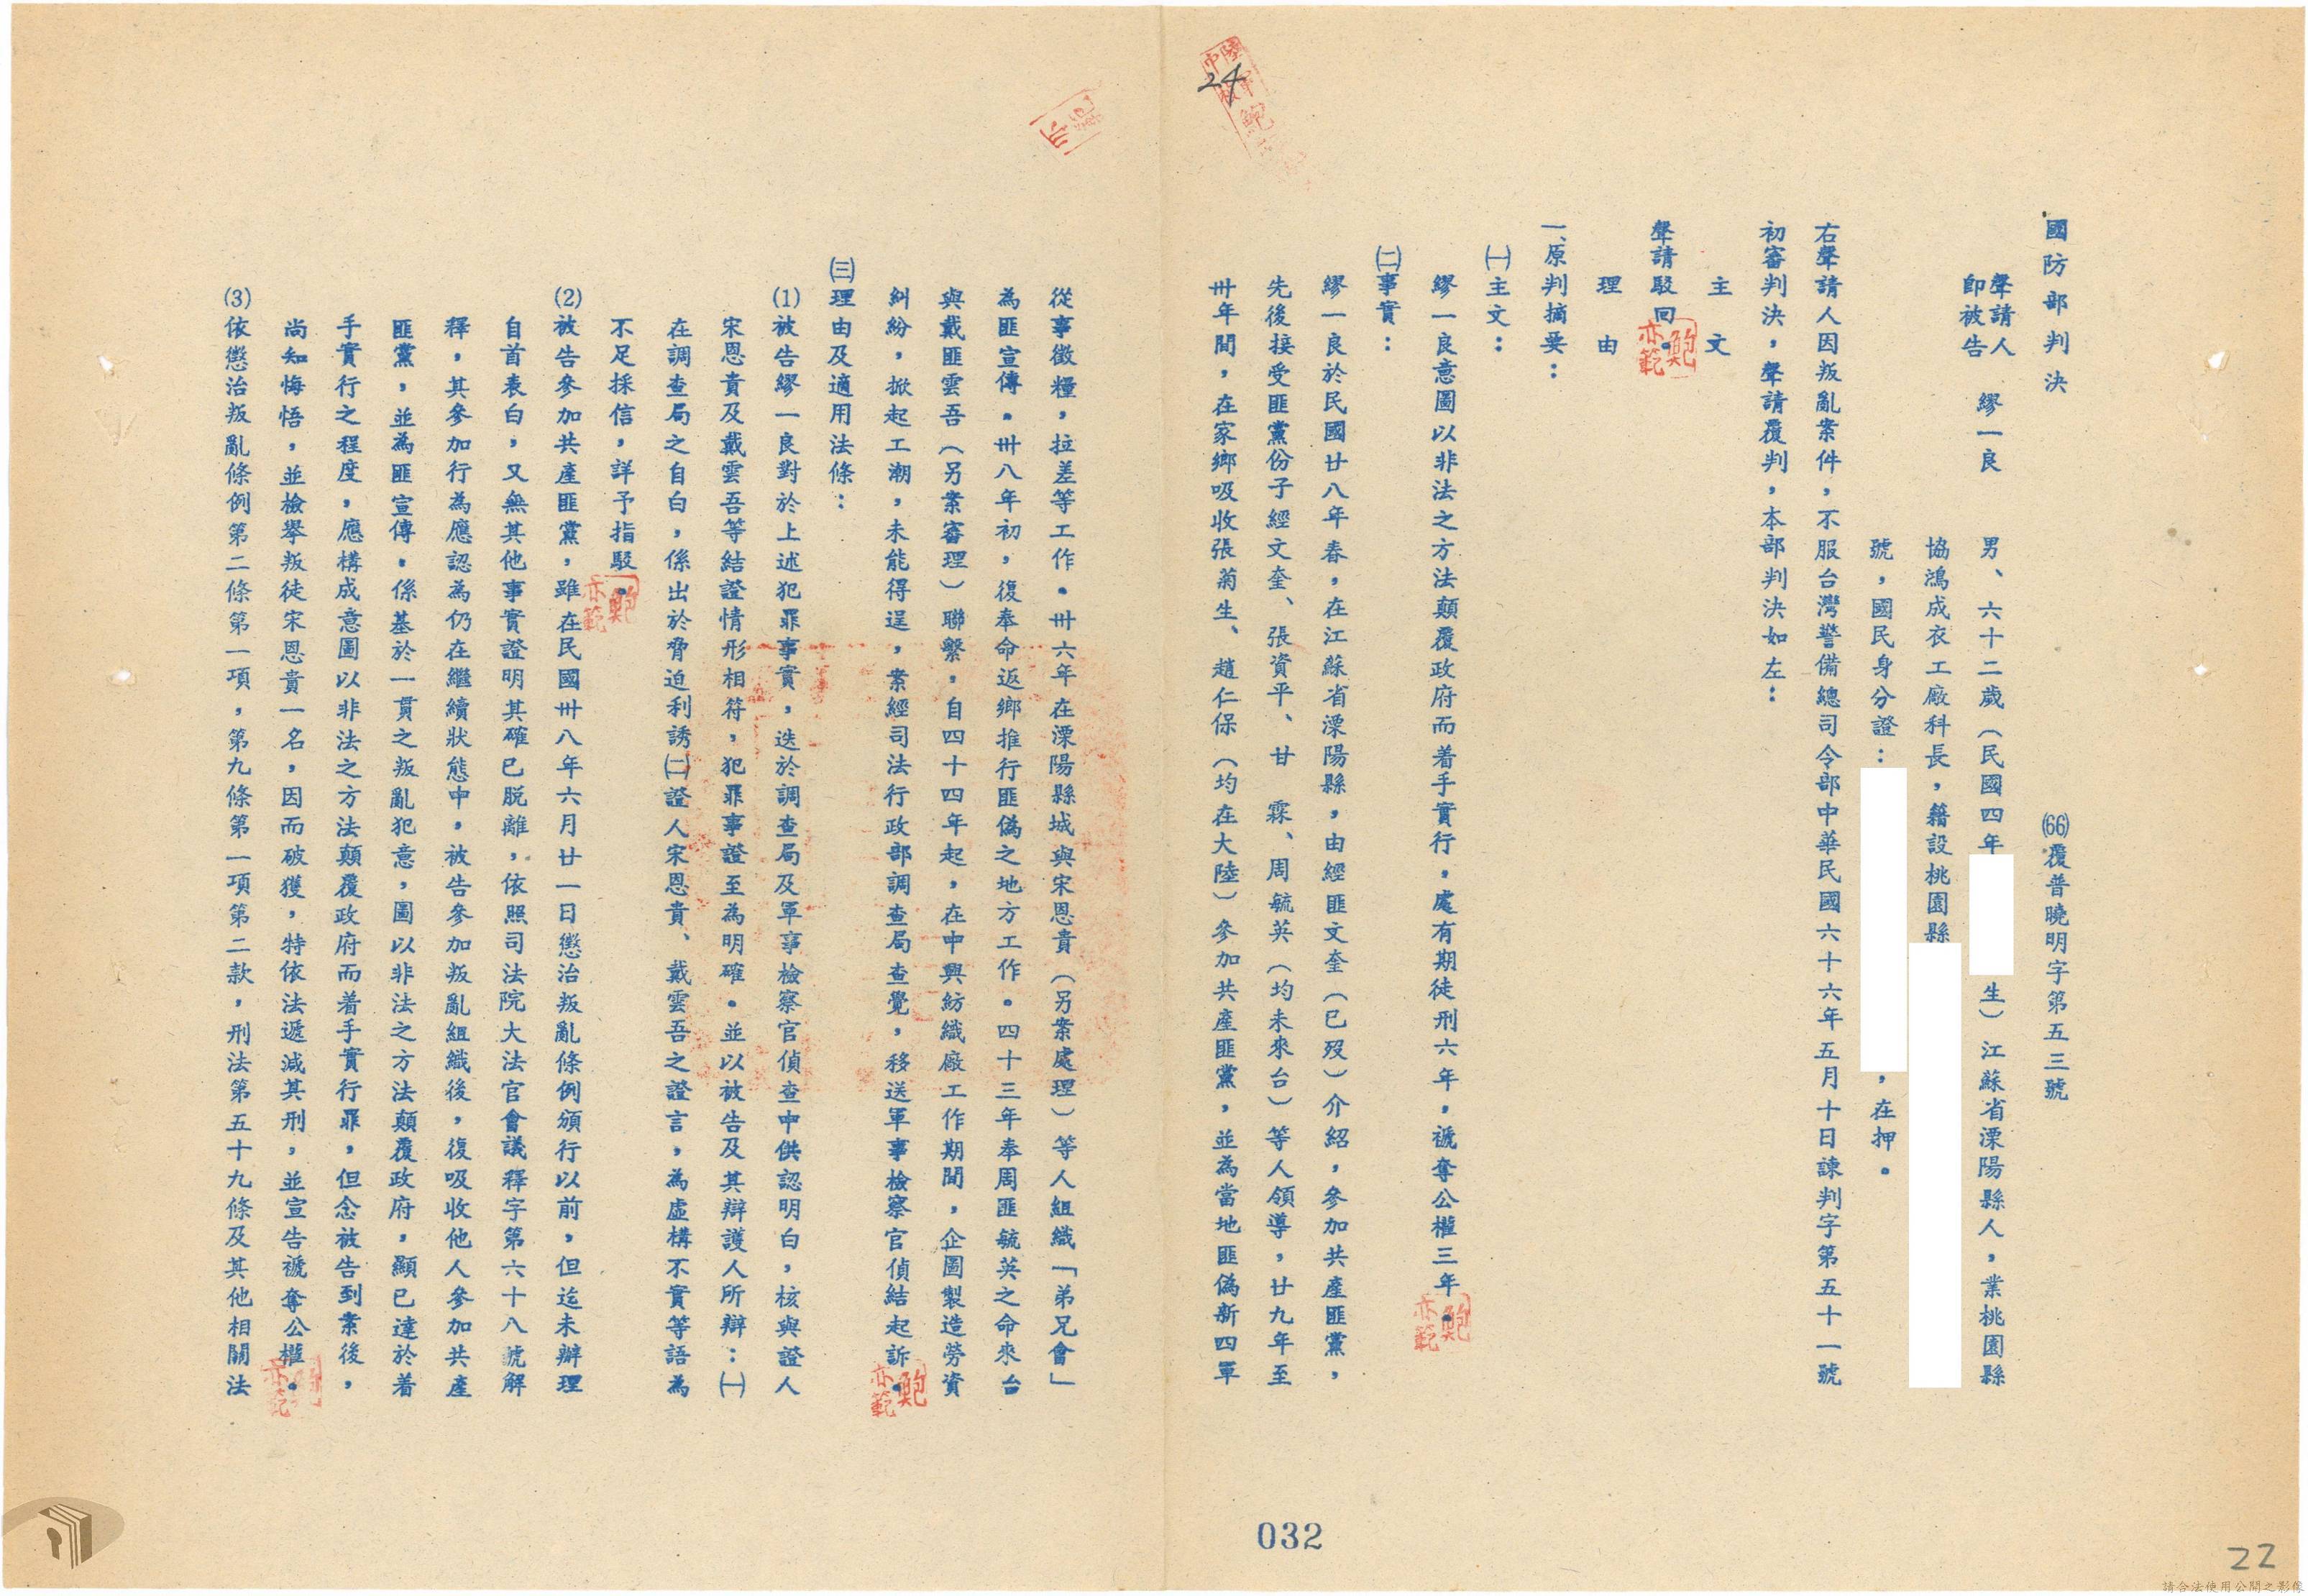 國防部判決
(66)覆普曉明字第五三號
聲請人
即被告 繆一良 男、六十二歲(民國四年 生)江蘇省溧陽縣人，業桃園縣
協鴻成衣工廠科長，籍設桃園縣
號，國民身分證： ，在押。
右聲請人因叛亂案件，不服台灣警備總司令部中華民國六十六年五月十日諫判字第五十一號
初審判決，聲請覆判，本部判決如左：
主文
聲請駁回。
理由
一、原判摘要：
㈠主文：
繆一良意圖以非法之方法顛覆政府而着手實行，處有期徒刑六年，褫奪公權三年。
㈡事實：
繆一良於民國廿八年春，在江蘇省溧陽縣，由經匪文奎(已歿)介紹，參加共產匪黨，
先後接受匪黨份子經文奎、張資平、甘 霖、周毓英(均未來台)等人領導，廿九年至
卅年間，在家鄉吸收張菊生、趙仁保(均在大陸)參加共產匪黨，並為當地匪偽新四軍
從事徵糧，拉差等工作。卅六年在溧陽縣城與宋恩貴(另案處理)等人組織「弟兄會」
為匪宣傳。卅八年初，復奉命返鄉推行匪偽之地方工作。四十三年奉周匪毓英之命來台
與戴匪雲吾(另案審理)聯繫，自四十四年起，在中興紡織廠工作期間，企圖製造勞資
糾紛，掀起工潮，未能得逞，案經司法行政部調查局查覺，移送軍事檢察官偵結起訴。
㈢理由及適用法條：
(1)被告繆一良對於上述犯罪事實，迭於調查局及軍事檢察官偵查中供認明白，核與證人
宋恩貴及戴雲吾等結證情形相符，犯罪事證至為明確。並以被告及其辯護人所辯：㈠
在調查局之自白，係出於脅迫利誘㈡證人宋恩貴、戴雲吾之證言，為虛構不實等語為
不足採信，詳予指駁。
(2)被告參加共產匪黨，雖在民國卅八年六月廿一日懲治叛亂條例頒行以前，但迄未辦理
自首表白，又無其他事實證明其確已脫離，依照司法院大法官會議釋字第六十八號解
釋，其參加行為應認為仍在繼續狀態中，被告參加叛亂組織後，復吸收他人參加共產
匪黨，並為匪宣傳。係基於一貫之叛亂犯意，圖以非法之方法顛覆政府，顯已達於着
手實行之程度，應構成意圖以非法之方法顛覆政府而着手實行罪，但念被告到案後，
尚知悔悟，並檢舉叛徒宋恩貴一名，因而破獲，特依法遞減其刑，並宣告褫奪公權。
(3)依懲治叛亂條例第二條第一項，第九條第一項第二款，刑法第五十九條及其他相關法
鮑亦範
鮑亦範
鮑亦範
鮑亦範
鮑亦範
24
032
22
請合法使用公開之影像